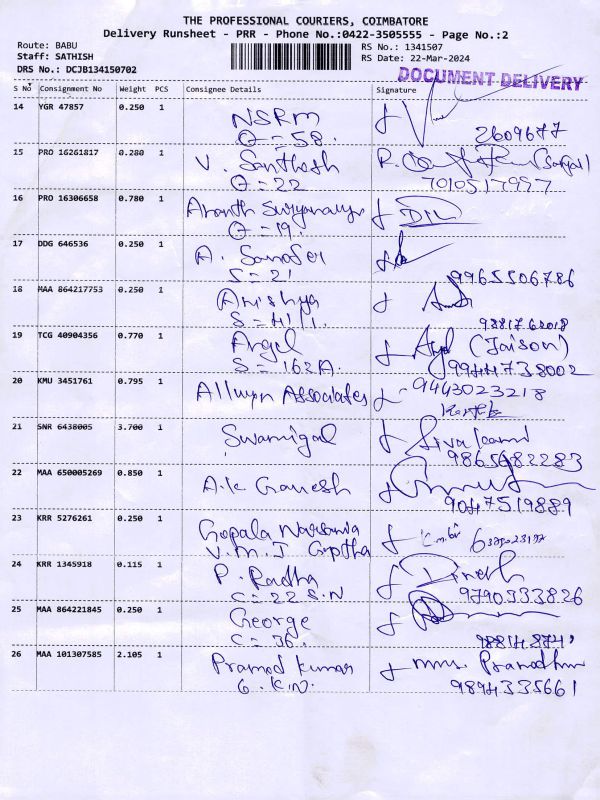 THE PROFESSIONAL COURIERS, COIMBATORE
Delivery Runsheet - PRR - Phone No.:0422-3505555 - Page No.:2
Route: BABU
Staff: SATHISH
DRS No.: DCJB134150702
RS No.: 1341507
RS Date: 22-Mar-2024
DOCUMENT DELIVERY
S No Consignment No Weight PCS Consignee Details Signature
14 YGR 47857 0.250 1 NSRM
O = 58. 2609677
15 PRO 16261817 0.280 1 V. Santhosh
O = 22 7010517997
16 PRO 16306658 0.780 1
O = 19.
17 DDG 646536 0.250 1 A. Sanofer
S = 21 9965506786
18 MAA 864217753 0.250 1 Anishya
S = 41/1.
19 TCG 40904356 0.770 1 Angel (Jaison)
S = 162A. 9944738002
20 KMU 3451761 0.795 1 Allwyn Associates 9443023218
Karthik
21 SNR 6438005 3.700 1 Swamigal
9865682283
22 MAA 650005269 0.850 1 A.K Ganesh
9047519889
23 KRR 5276261 0.250 1 Gopala
V.M.J Guptha
24 KRR 1345918 0.115 1 P. Radha Dinesh
C = 22 S.N 9790333826
25 MAA 864221845 0.250 1 George
C = 36.
26 MAA 101307585 2.105 1 Pramod Kumar
G.K.N. 9894335661